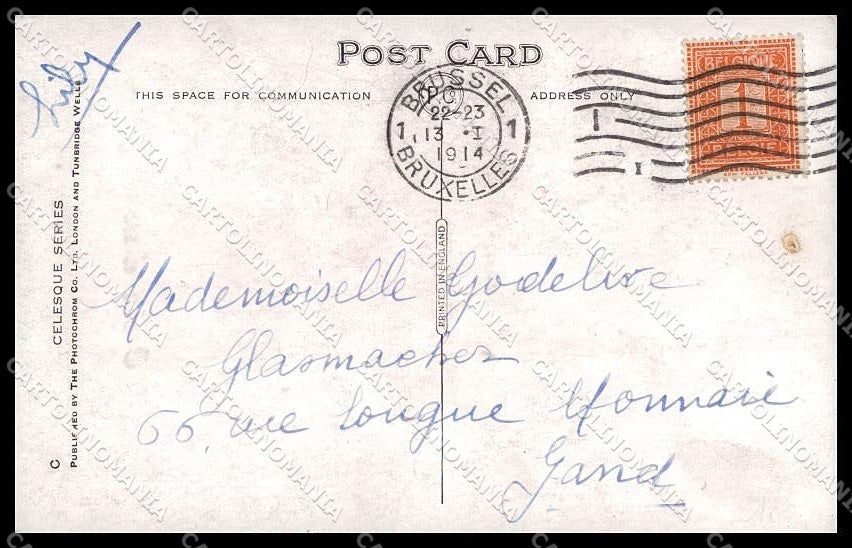 POST CARD
THIS SPACE FOR COMMUNICATION
ADDRESS ONLY
Lily
BRUSSEL
(P.C)
22-23
1 13 I 1
1914
BRUXELLES
BELGIQUE
1
PRINTED IN ENGLAND
CELESQUE SERIES
PUBLISHED BY THE PHOTOCHROM CO. LTD. LONDON AND TUNBRIDGE WELLS
C
Mademoiselle Godelive
Glasmacher
66 rue longue Monnaie
Gand
CARTOLINOMANIA